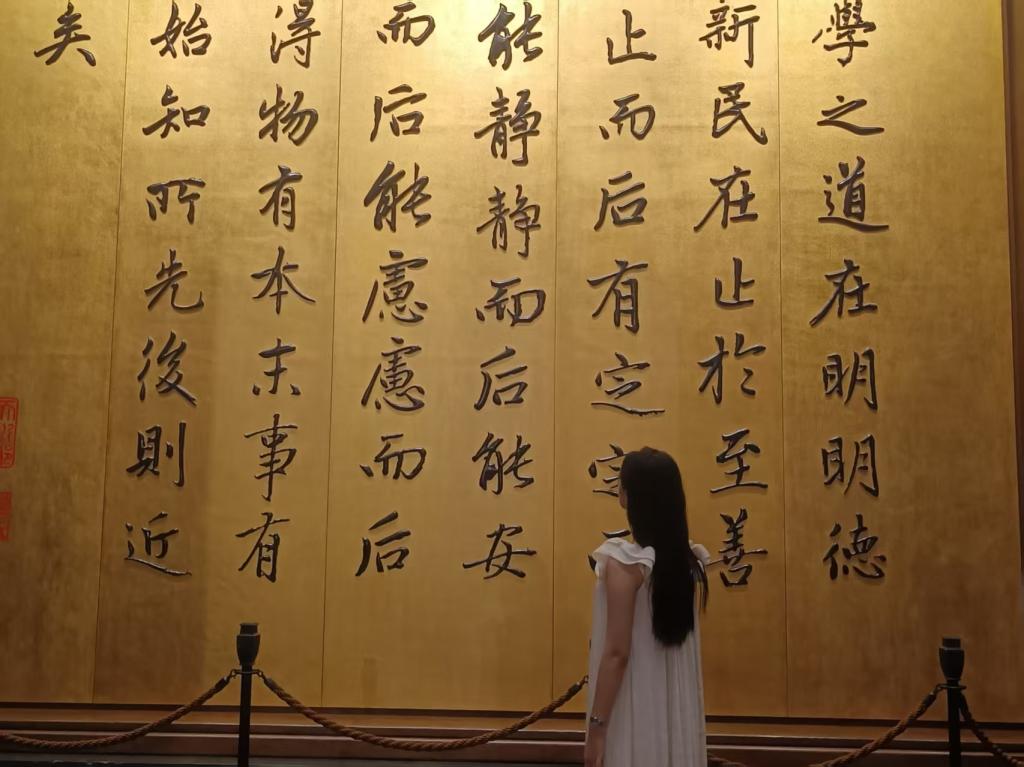 學之道在明明德
新民在止於至善
止而后有定定
能静静而后能安
而后能慮慮而后
得物有本末事有
始知所先後則近
矣